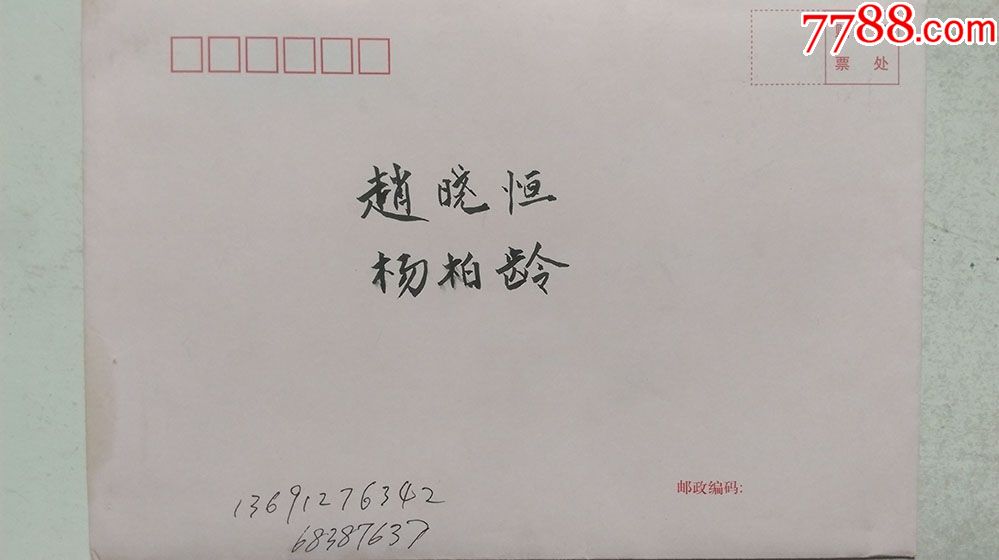 7788.com
票 处
趙晓恒
杨柏龄
邮政编码:
13691276342
68387637